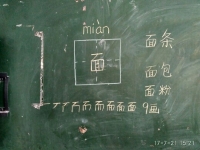 mian
面
面条
面包
面粉
一丆丆万而而面面面 9画
17-7-21 15:21